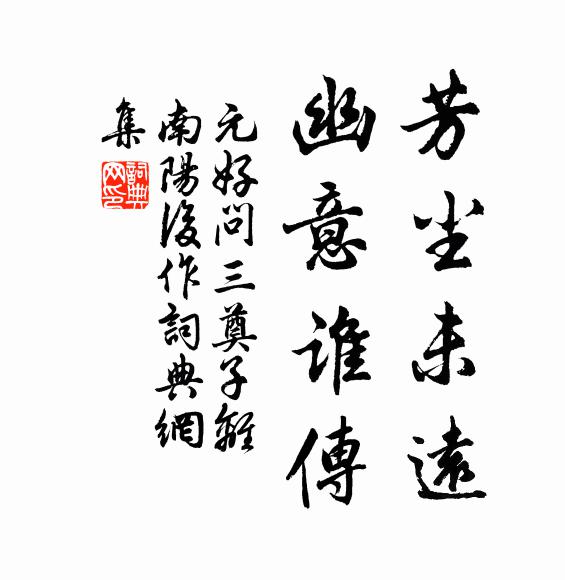 芳尘未遠
幽意誰傳
元好问三奠子離
南陽後作詞典網
集
詞典
网印